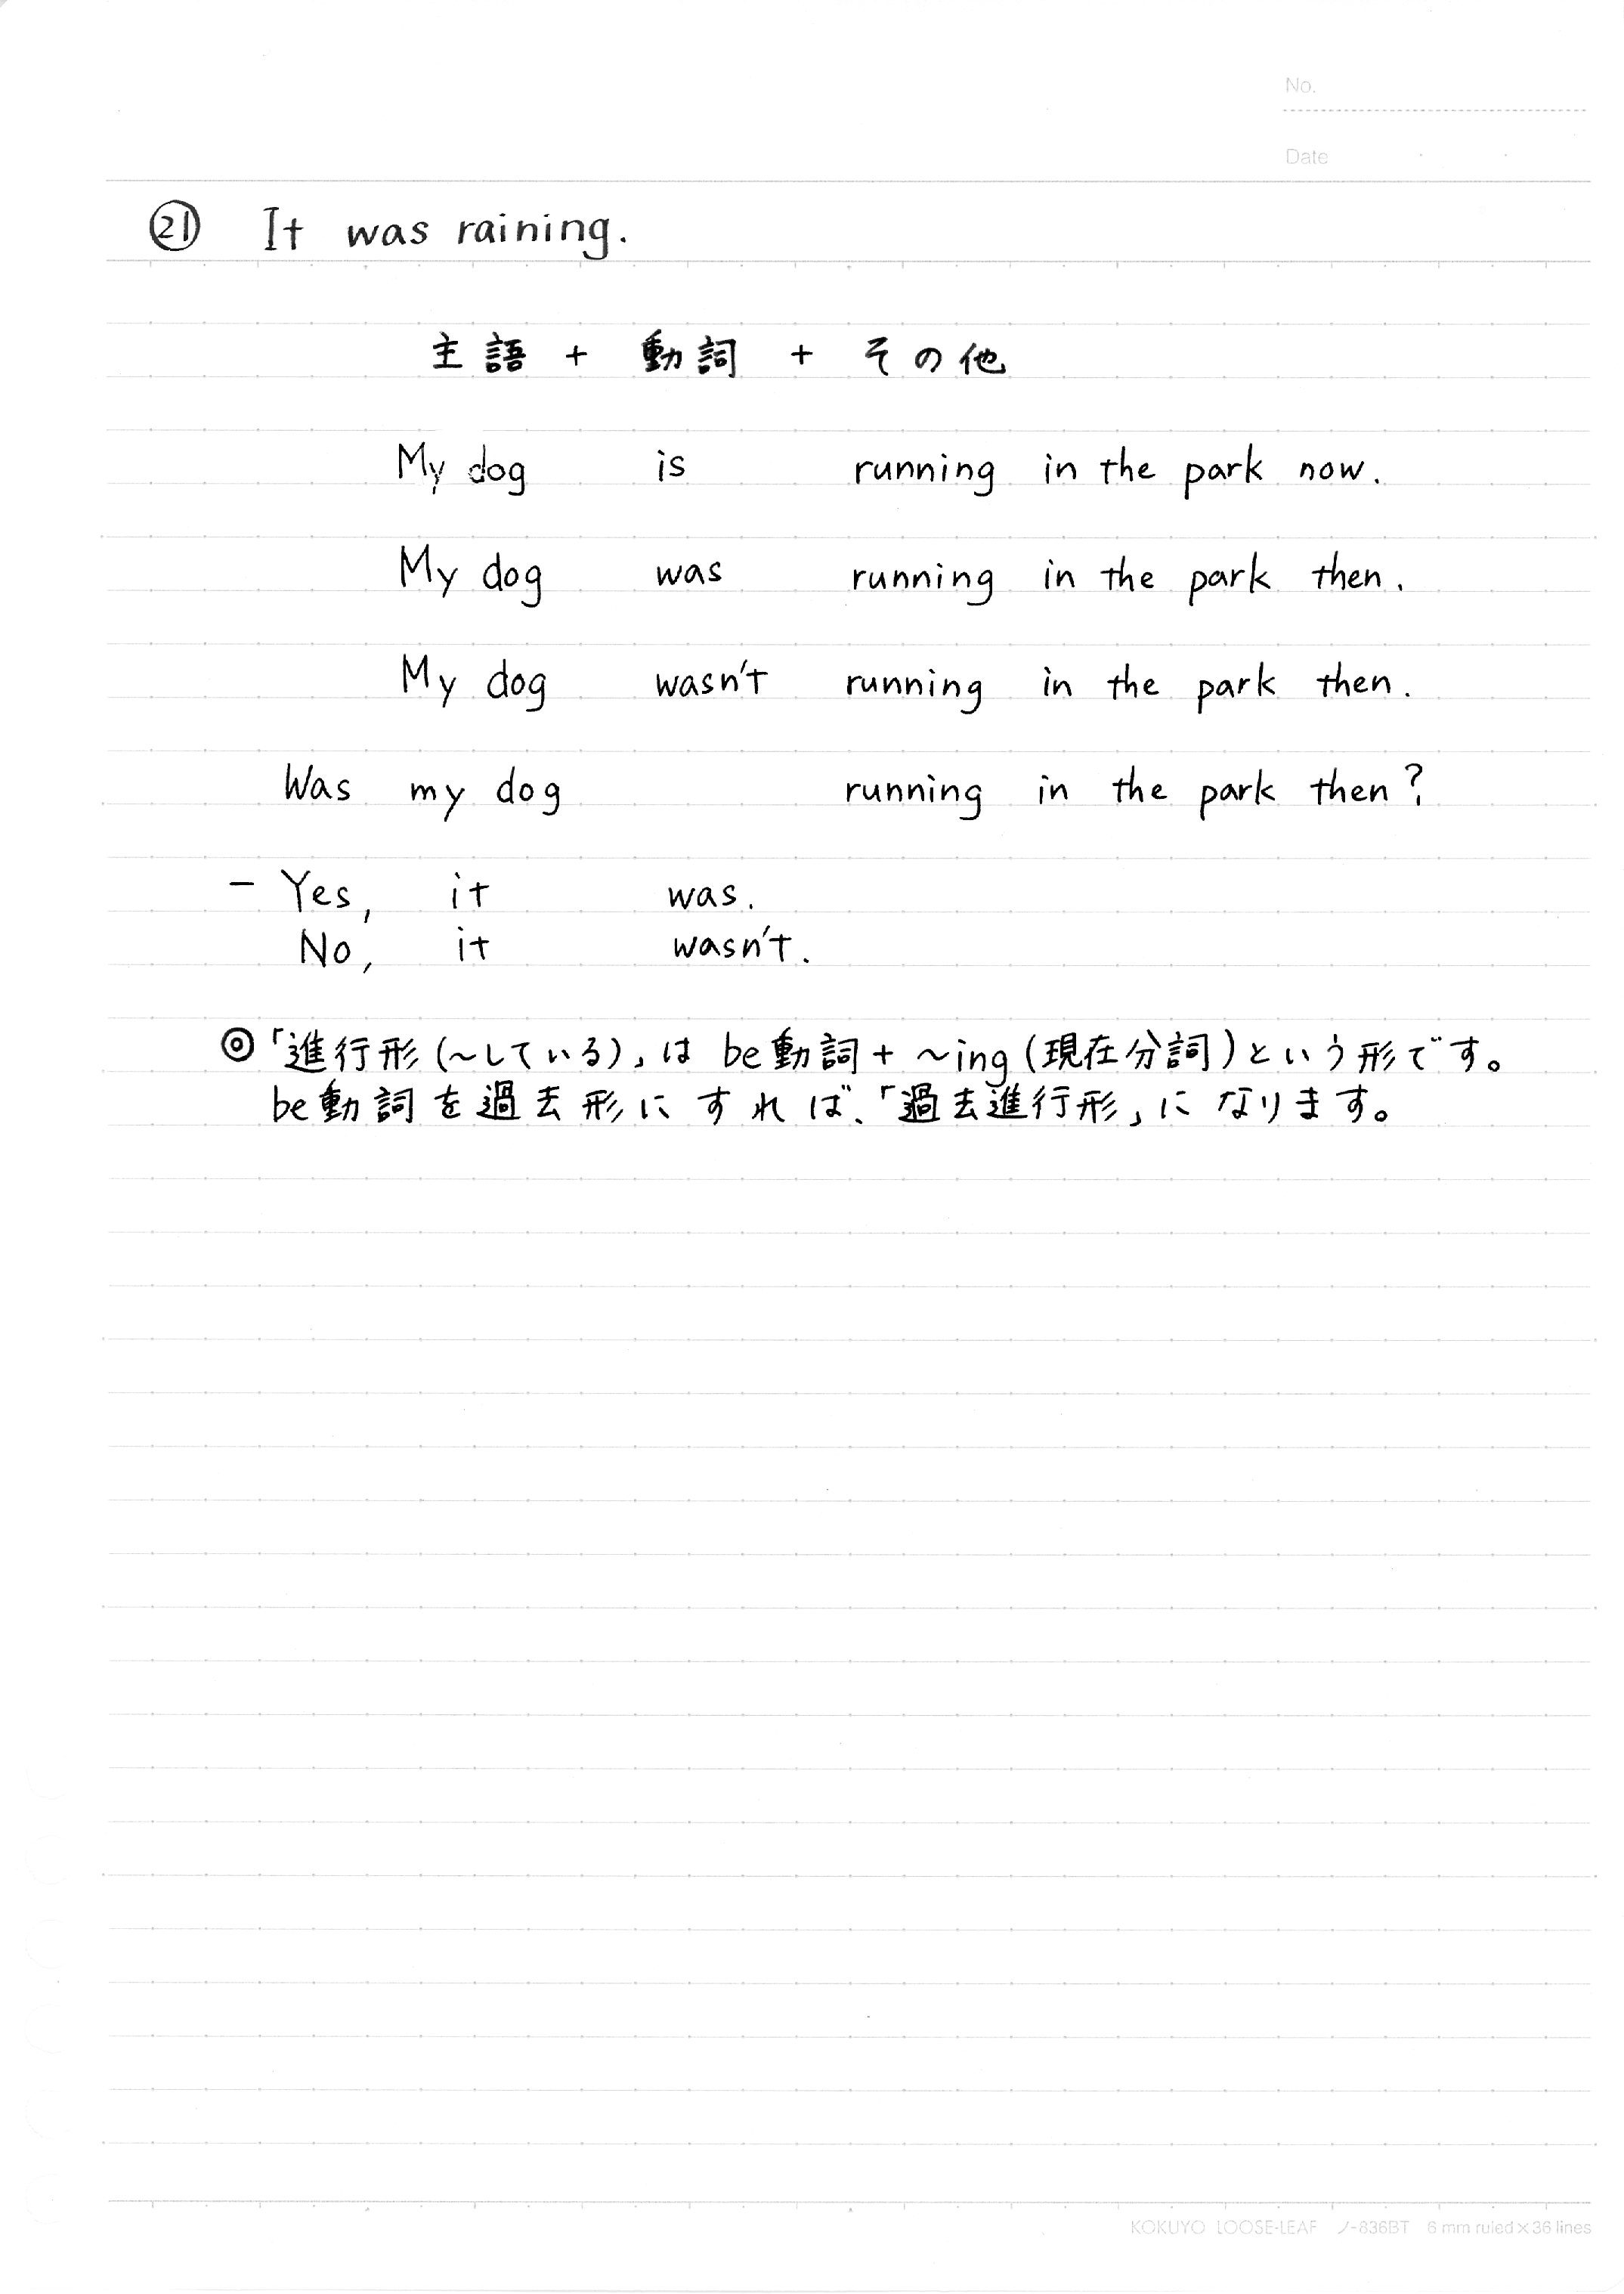 No.
Date
㉑ It was raining.
主語 + 動詞 + その他
My dog is running in the park now.
My dog was running in the park then.
My dog wasn't running in the park then.
Was my dog running in the park then?
- Yes, it was.
No, it wasn't.
◎「進行形(~している)」は be動詞 + ~ing (現在分詞)という形です。
be動詞を過去形にすれば、「過去進行形」になります。
KOKUYO LOOSE-LEAF ノ-836BT 6 mm ruled×36 lines